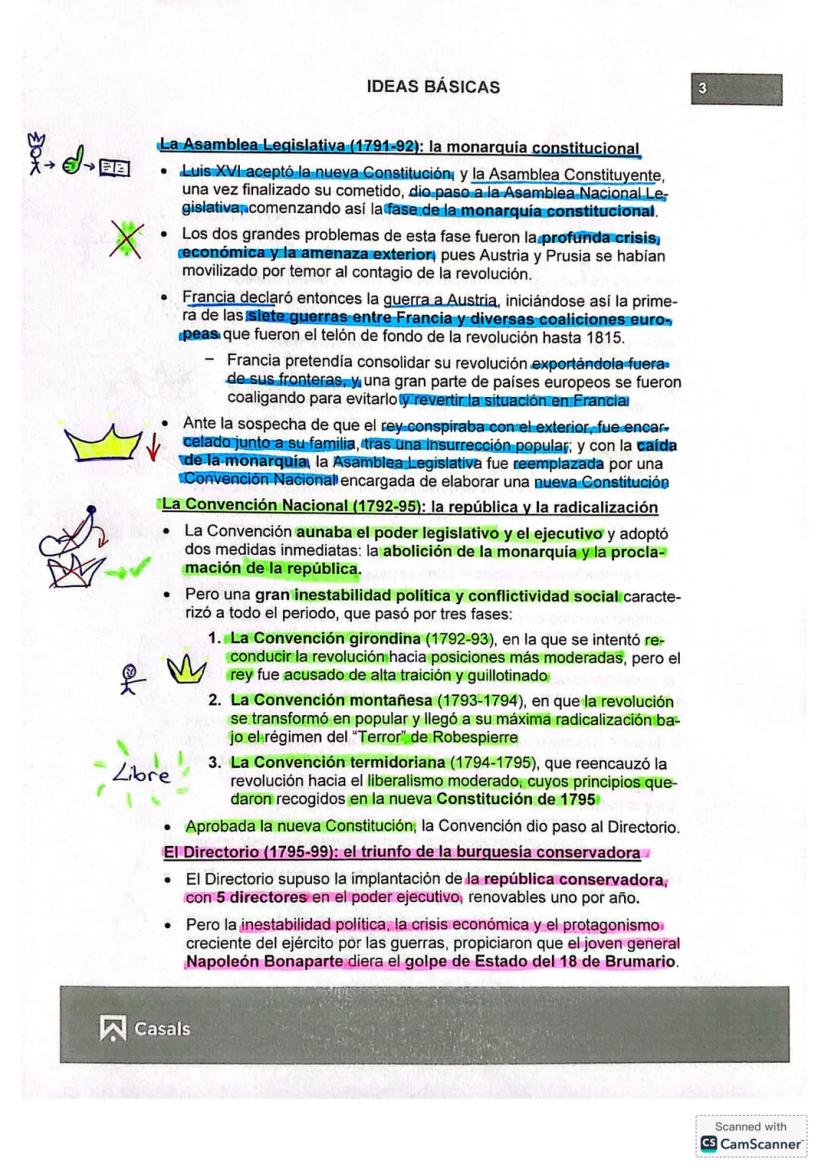 IDEAS BÁSICAS
3
La Asamblea Legislativa (1791-92): la monarquía constitucional
• Luis XVI aceptó la nueva Constitución, y la Asamblea Constituyente,
una vez finalizado su cometido, dio paso a la Asamblea Nacional Le-
gislativa, comenzando así la fase de la monarquía constitucional.
• Los dos grandes problemas de esta fase fueron la profunda crisis
económica y la amenaza exterior, pues Austria y Prusia se habían
movilizado por temor al contagio de la revolución.
• Francia declaró entonces la guerra a Austria, iniciándose así la prime-
ra de las siete guerras entre Francia y diversas coaliciones euro-
peas que fueron el telón de fondo de la revolución hasta 1815.
− Francia pretendía consolidar su revolución exportándola fuera
de sus fronteras, y una gran parte de países europeos se fueron
coaligando para evitarlo y revertir la situación en Francia
• Ante la sospecha de que el rey conspiraba con el exterior, fue encar-
celado junto a su familia, tras una insurrección popular; y con la caída
de la monarquía, la Asamblea Legislativa fue reemplazada por una
Convención Nacional encargada de elaborar una nueva Constitución
La Convención Nacional (1792-95): la república y la radicalización
• La Convención aunaba el poder legislativo y el ejecutivo y adoptó
dos medidas inmediatas: la abolición de la monarquía y la procla-
mación de la república.
• Pero una gran inestabilidad política y conflictividad social caracte-
rizó a todo el periodo, que pasó por tres fases:
1. La Convención girondina (1792-93), en la que se intentó re-
conducir la revolución hacia posiciones más moderadas, pero el
rey fue acusado de alta traición y guillotinado
2. La Convención montañesa (1793-1794), en que la revolución
se transformó en popular y llegó a su máxima radicalización ba-
jo el régimen del "Terror" de Robespierre
Libre
3. La Convención termidoriana (1794-1795), que reencauzó la
revolución hacia el liberalismo moderado, cuyos principios que-
daron recogidos en la nueva Constitución de 1795
• Aprobada la nueva Constitución, la Convención dio paso al Directorio.
El Directorio (1795-99): el triunfo de la burguesía conservadora
• El Directorio supuso la implantación de la república conservadora,
con 5 directores en el poder ejecutivo, renovables uno por año.
• Pero la inestabilidad política, la crisis económica y el protagonismo
creciente del ejército por las guerras, propiciaron que el joven general
Napoleón Bonaparte diera el golpe de Estado del 18 de Brumario.
Casals
Scanned with
CS CamScanner